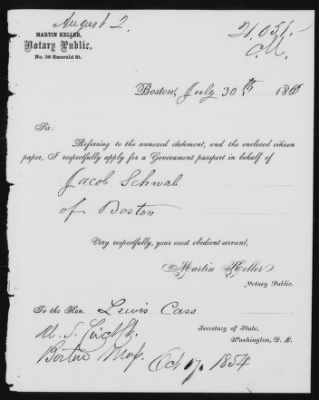 August 2.
21.051.
C.M.
MARTIN KELLER,
Notary Public,
No. 38 Emerald St.
Boston, July 30th 186
Sir:
Referring to the annexed statement, and the enclosed citizen
paper, I respectfully apply for a Government passport in behalf of
Jacob Schwab
of Boston
Very respectfully, your most obedient servant,
Martin Keller
Notary Public.
To the Hon. Lewis Cass
Secretary of State,
Washington, D. C.
U. S.
Boston Mass
Oct 17, 1854